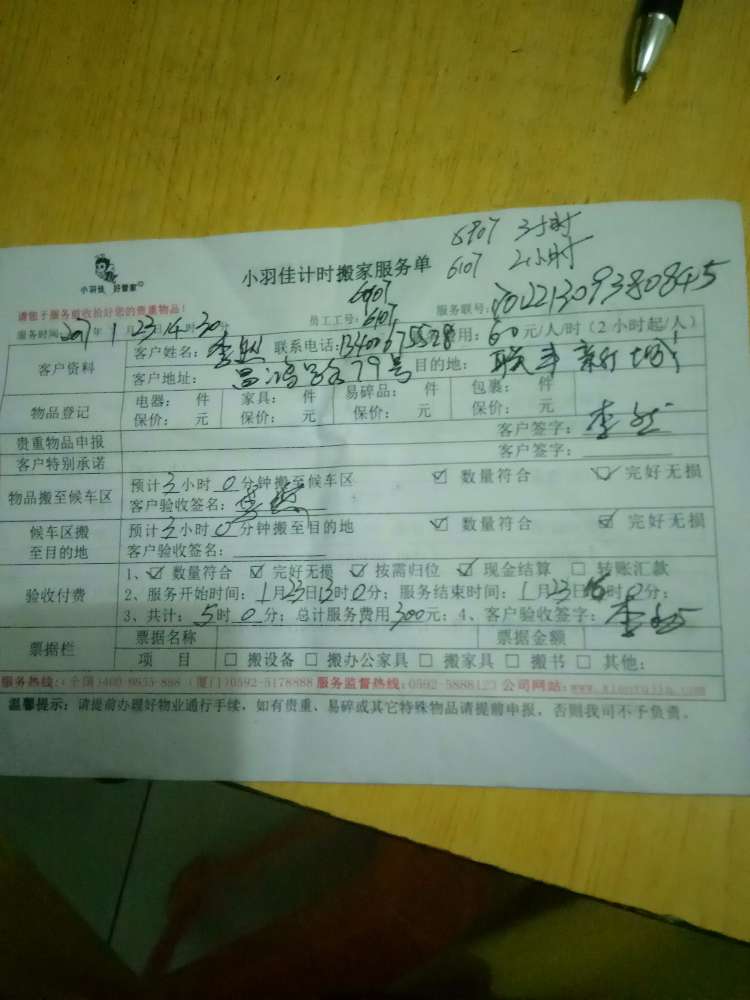 6907 3小时
6107 2小时
小羽佳 好管家
小羽佳计时搬家服务单
6907
请包子服务前收拾好您的贵重物品!
员工工号: 6107
服务联号:
服务时间: 年 1月23日14时30分
客户资料
客户姓名: 联系电话: 费用: 60元/人/时(2小时起/人)
客户地址: 79号 目的地:
物品登记
电器: 件 家具: 件 易碎品: 件 包裹: 件
保价: 元 保价: 元 保价: 元 保价: 元
贵重物品申报 客户签字:
客户特别承诺 客户签字:
物品搬至候车区
预计3小时0分钟搬至候车区 ☑ 数量符合 ☑ 完好无损
客户验收签名:
候车区搬至目的地
预计2小时0分钟搬至目的地 ☑ 数量符合 ☑ 完好无损
客户验收签名:
验收付费
1、☑ 数量符合 ☑ 完好无损 ☑ 按需归位 ☑ 现金结算 □ 转账汇款
2、服务开始时间: 1月23日13时0分; 服务结束时间: 1月23日 时0分;
3、共计: 5时0分; 总计服务费用300元; 4、客户验收签字:
票据栏
票据名称 票据金额
项 目 □ 搬设备 □ 搬办公家具 □ 搬家具 □ 搬书 □ 其他:
服务热线:(全国)400-6655-888 (厦门)0592-5178888 服务监督热线:0592-5888123 公司网站:www.xiaoyujia.com
温馨提示: 请提前办理好物业通行手续, 如有贵重、易碎或其它特殊物品请提前申报, 否则我司不予负责。